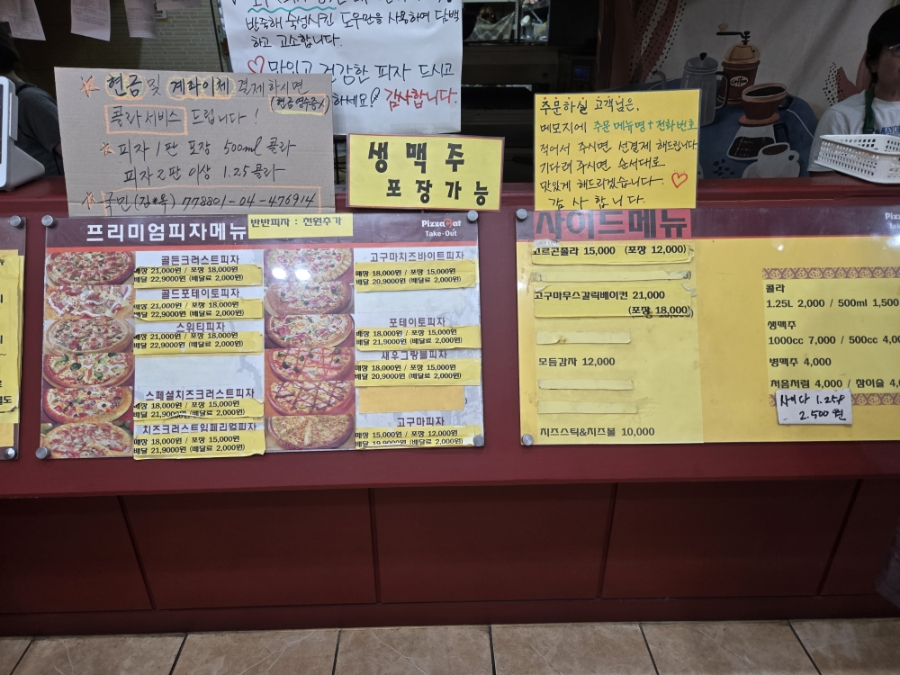 반죽해 숙성시킨 도우만을 사용하여 담백
하고 고소합니다.
♡ 맛있고 건강한 피자 드시고
하세요! 감사합니다.
☆ 현금 및 계좌이체 결제하시면
(현금영수증X)
콜라서비스 드립니다!
☆ 피자 1판 포장 500ml 콜라
피자 2판 이상 1.25 콜라
☆ 국민 (김*옥) 778801-04-476914
생맥주
포장가능
주문하실 고객님은,
메모지에 주문메뉴명+전화번호
적어서 주시면, 선결제 해드립니다
기다려 주시면, 순서대로..
맛있게 해드리겠습니다. ♡
감사합니다.
프리미엄피자메뉴
반반피자 : 천원추가
Pizza Eat
Take-Out
골든크러스트피자
매장 21,000원 / 포장 18,000원
배달 22,900원 (배달료 2,000원)
골드포테이토피자
매장 21,000원 / 포장 18,000원
배달 22,900원 (배달료 2,000원)
스위티피자
매장 21,000원 / 포장 18,000원
배달 22,900원 (배달료 2,000원)
스페셜치즈크러스트피자
매장 18,000원 / 포장 15,000원
배달 21,900원 (배달료 2,000원)
치즈크러스트임페리얼피자
매장 18,000원 / 포장 15,000원
배달 21,900원 (배달료 2,000원)
고구마치즈바이트피자
매장 18,000원 / 포장 15,000원
배달 20,900원 (배달료 2,000원)
포테이토피자
매장 18,000원 / 포장 15,000원
배달 20,900원 (배달료 2,000원)
새우그랑블피자
매장 18,000원 / 포장 15,000원
배달 20,900원 (배달료 2,000원)
고구마피자
매장 15,000원 / 포장 12,000원
배달 19,900원 (배달료 2,000원)
사이드메뉴
고르곤졸라 15,000 (포장 12,000)
고구마무스갈릭베이컨 21,000
(포장 18,000)
모듬감자 12,000
치즈스틱&치즈볼 10,000
콜라
1.25L 2,000 / 500ml 1,500
생맥주
1000cc 7,000 / 500cc 4,00
병맥주 4,000
처음처럼 4,000 / 참이슬 4,0
사이다 1.25l
2.500원